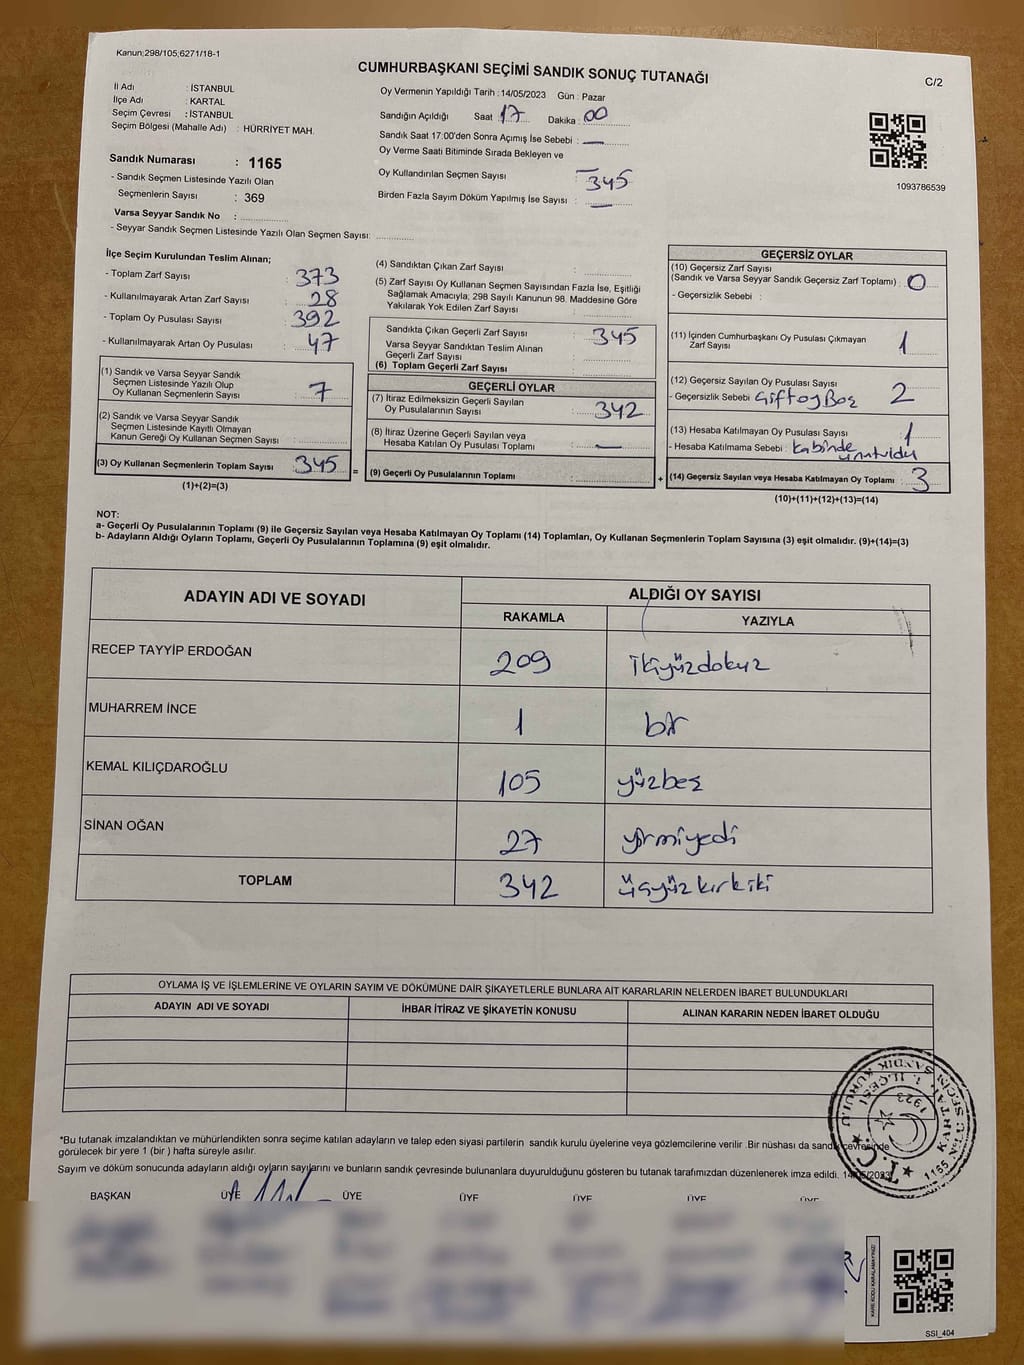 Kanun;298/105;6271/18-1
CUMHURBAŞKANI SEÇİMİ SANDIK SONUÇ TUTANAĞI
C/2
İl Adı : İSTANBUL
İlçe Adı : KARTAL
Seçim Çevresi : İSTANBUL
Seçim Bölgesi (Mahalle Adı) : HÜRRİYET MAH.
Sandık Numarası : 1165
- Sandık Seçmen Listesinde Yazılı Olan
Seçmenlerin Sayısı : 369
Varsa Seyyar Sandık No :
- Seyyar Sandık Seçmen Listesinde Yazılı Olan Seçmen Sayısı:
Oy Vermenin Yapıldığı Tarih : 14/05/2023 Gün : Pazar
Sandığın Açıldığı Saat 17 Dakika : 00
Sandık Saat 17:00'den Sonra Açımış İse Sebebi : —
Oy Verme Saati Bitiminde Sırada Bekleyen ve
Oy Kullandırılan Seçmen Sayısı : 345
Birden Fazla Sayım Döküm Yapılmış İse Sayısı : —
1093786539
İlçe Seçim Kurulundan Teslim Alınan;
- Toplam Zarf Sayısı : 373
- Kullanılmayarak Artan Zarf Sayısı : 28
- Toplam Oy Pusulası Sayısı : 392
- Kullanılmayarak Artan Oy Pusulası : 47
(1) Sandık ve Varsa Seyyar Sandık
Seçmen Listesinde Yazılı Olup
Oy Kullanan Seçmenlerin Sayısı : 7
(2) Sandık ve Varsa Seyyar Sandık
Seçmen Listesinde Kayıtlı Olmayan
Kanun Gereği Oy Kullanan Seçmen Sayısı :
(3) Oy Kullanan Seçmenlerin Toplam Sayısı : 345
(1)+(2)=(3)
=
(4) Sandıktan Çıkan Zarf Sayısı :
(5) Zarf Sayısı Oy Kullanan Seçmen Sayısından Fazla İse, Eşitliği
Sağlamak Amacıyla; 298 Sayılı Kanunun 98. Maddesine Göre
Yakılarak Yok Edilen Zarf Sayısı :
Sandıkta Çıkan Geçerli Zarf Sayısı : 345
Varsa Seyyar Sandıktan Teslim Alınan
Geçerli Zarf Sayısı :
(6) Toplam Geçerli Zarf Sayısı :
GEÇERLİ OYLAR
(7) İtiraz Edilmeksizin Geçerli Sayılan
Oy Pusulalarının Sayısı : 342
(8) İtiraz Üzerine Geçerli Sayılan veya
Hesaba Katılan Oy Pusulası Toplamı : —
(9) Geçerli Oy Pusulalarının Toplamı :
+
GEÇERSİZ OYLAR
(10) Geçersiz Zarf Sayısı
(Sandık ve Varsa Seyyar Sandık Geçersiz Zarf Toplamı) : 0
- Geçersizlik Sebebi :
(11) İçinden Cumhurbaşkanı Oy Pusulası Çıkmayan
Zarf Sayısı : 1
(12) Geçersiz Sayılan Oy Pusulası Sayısı : 2
- Geçersizlik Sebebi Çiftoy Boş
(13) Hesaba Katılmayan Oy Pusulası Sayısı : 1
- Hesaba Katılmama Sebebi : kabinde unutuldu
(14) Geçersiz Sayılan veya Hesaba Katılmayan Oy Toplamı : 3
(10)+(11)+(12)+(13)=(14)
NOT:
a- Geçerli Oy Pusulalarının Toplamı (9) ile Geçersiz Sayılan veya Hesaba Katılmayan Oy Toplamı (14) Toplamları, Oy Kullanan Seçmenlerin Toplam Sayısına (3) eşit olmalıdır. (9)+(14)=(3)
b- Adayların Aldığı Oyların Toplamı, Geçerli Oy Pusulalarının Toplamına (9) eşit olmalıdır.
ADAYIN ADI VE SOYADI
ALDIĞI OY SAYISI
RAKAMLA YAZIYLA
RECEP TAYYİP ERDOĞAN 209 ikiyüzdokuz
MUHARREM İNCE 1 bir
KEMAL KILIÇDAROĞLU 105 yüzbeş
SİNAN OĞAN 27 yirmiyedi
TOPLAM 342 üçyüzkırkiki
OYLAMA İŞ VE İŞLEMLERİNE VE OYLARIN SAYIM VE DÖKÜMÜNE DAİR ŞİKAYETLERLE BUNLARA AİT KARARLARIN NELERDEN İBARET BULUNDUKLARI
ADAYIN ADI VE SOYADI İHBAR İTİRAZ VE ŞİKAYETİN KONUSU ALINAN KARARIN NEDEN İBARET OLDUĞU
T.C.
KARTAL 1. İLÇESİ
1165 NO'LU SEÇİM SANDIK KURULU
1923
*Bu tutanak imzalandıktan ve mühürlendikten sonra seçime katılan adayların ve talep eden siyasi partilerin sandık kurulu üyelerine veya gözlemcilerine verilir .Bir nüshası da sandık çevresinde
görülecek bir yere asılır 1 (bir ) hafta süreyle asılır.
Sayım ve döküm sonucunda adayların aldığı oyların sayılarını ve bunların sandık çevresinde bulunanlara duyurulduğunu gösteren bu tutanak tarafımızdan düzenlenerek imza edildi. 14/05/2023
BAŞKAN ÜYE ÜYE ÜYE ÜYE ÜYE ÜYE
KARE KODU KARALAMAYINIZ!
SSI_404